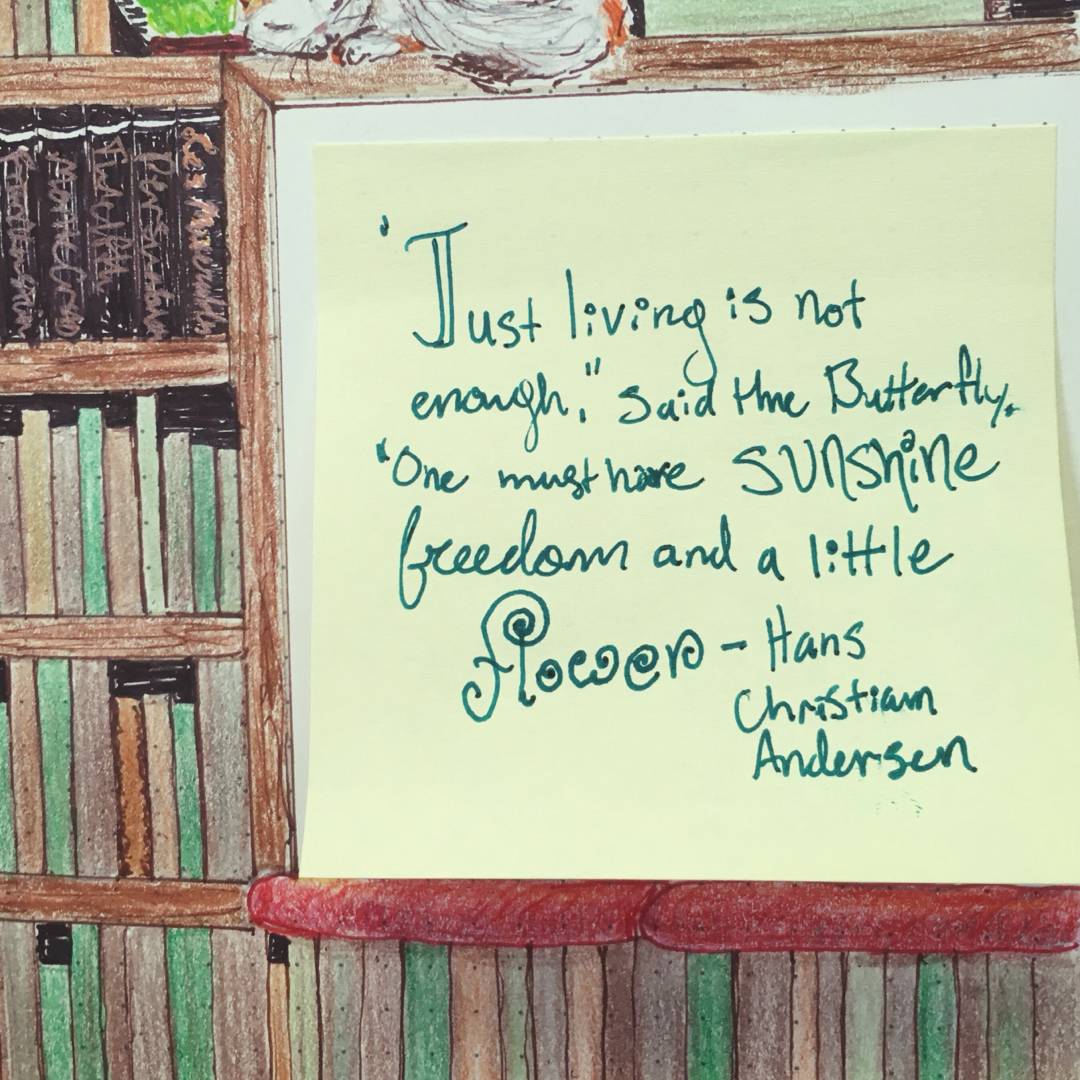 Les Misérables
Persuasion
'Just living is not
enough," said the Butterfly,
"One must have sunshine
freedom and a little
flower - Hans
Christian
Andersen